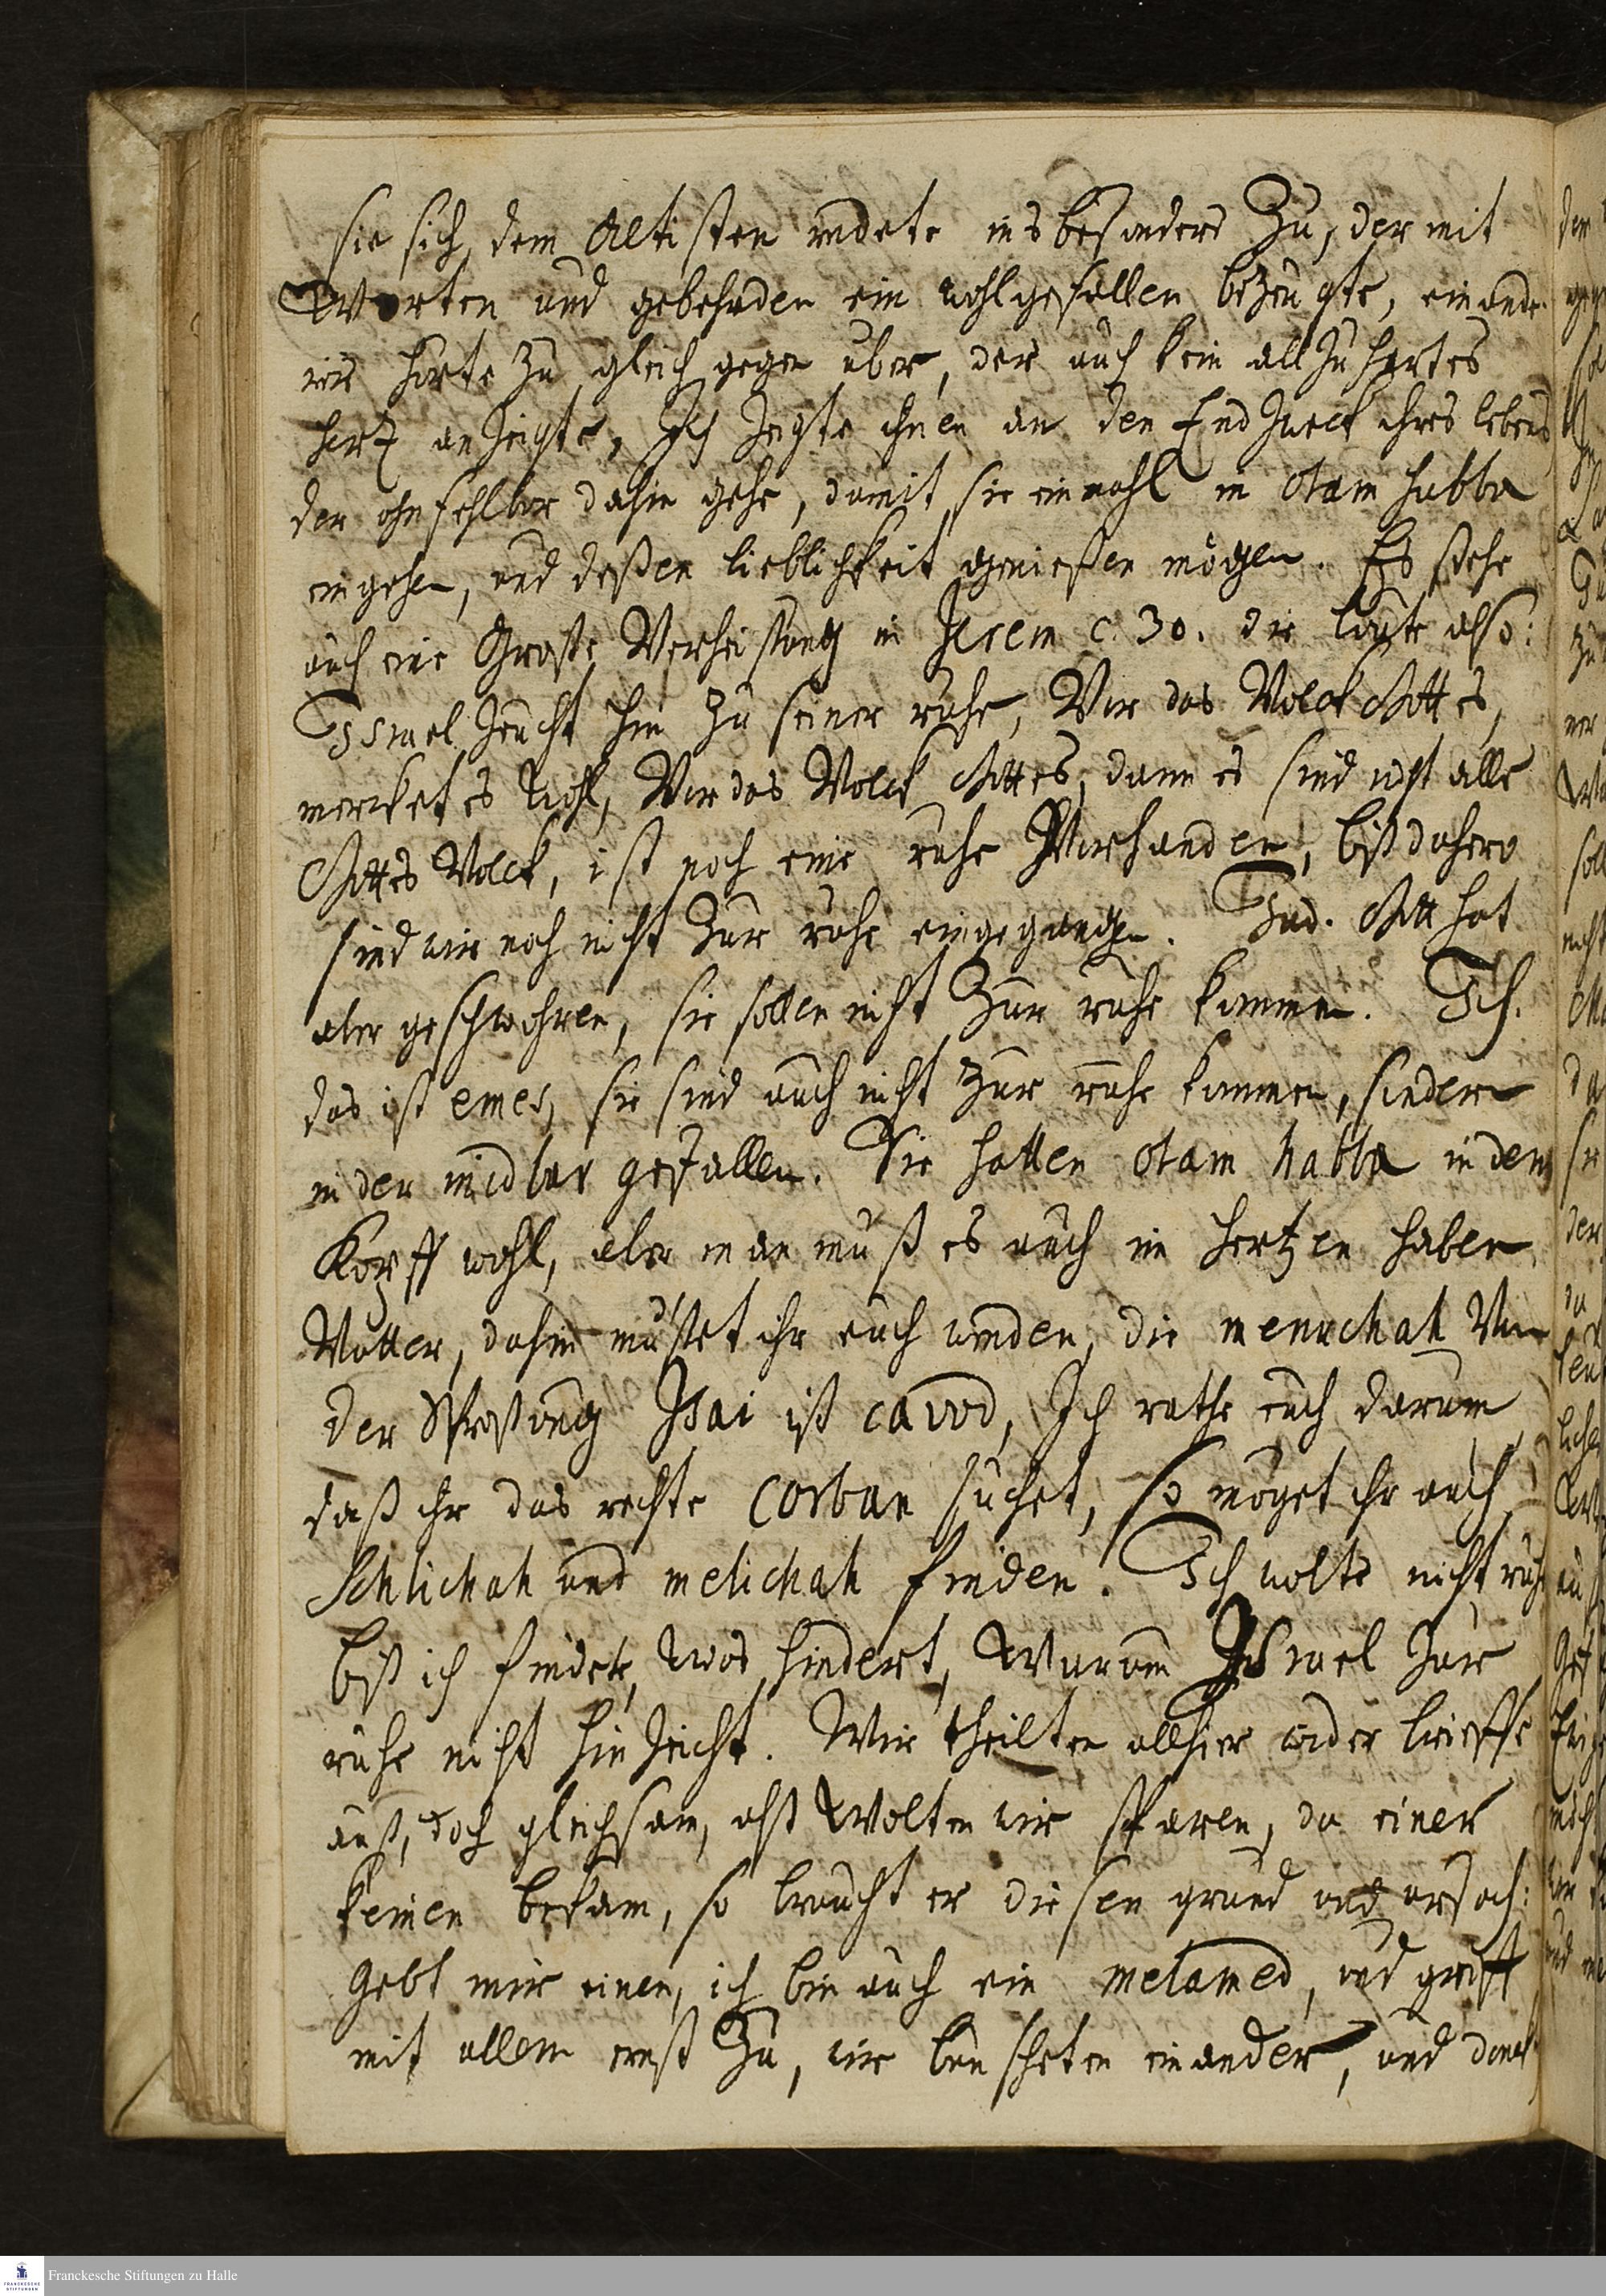 sie sich, dem Altisten redete ins besonders Zu, der mit
Worten und gebehrden ein wohlgefallen bezeugte, ein ande-
rer hörte zu gleich gegen über, der auch kein allzu hartes
hertz anzeigte, Ich zeigte ihnen an den Endzweck ihres lebens
der ohnfehlbar dahin gehe, damit sie einmahl in olam habba
eingehen, und deßen lieblichkeit genießen mögen. Es stehe
auch eine Große Verheißung in Jerem c. 30. die laute also:
Israel zeucht hin zu seiner ruhe, Vor das Volck Gottes,
mercket es wohl, Vor das Volck Gottes, dann es sind nicht alle
Gottes Volck, ist noch eine ruhe Vorhanden, biß dahero
sind wir noch nicht zur ruhe eingegangen. Jud. Gott hat
aber geschwohren, sie sollen nicht zur ruhe kommen. Ich.
das ist emes, sie sind auch nicht zur ruhe kommen, sondern
in der midbar gefallen. Sie hatten olam habba in dem
Kopff wohl, aber man muß es auch im hertzen haben
Vatter, dahin müßet ihr euch wenden, die menuchah Von
der Sproßung Isai ist cavod, Ich rathe euch darum
daß ihr das rechte corban suchet, so möget ihr auch
Schlichah und melichah finden. Ich wolte nicht ruhen
biß ich findete, was hindert, Warum Israel zur
ruhe nicht hin zeicht. Wir theilten allhier wider brieffe
auß, doch gleichsam, alß Wolten wir sparen, da einer
keinen bekam, so braucht er diesen grund und ursach:
Gebt mir einen, ich bin auch ein melamed, und griff
mit allem ernst Zu, wir benscheten einander, und
Franckesche Stiftungen zu Halle